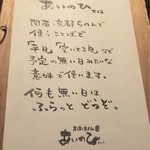 あいのひ とは
関西、京都らへんで
使うことばで
「平日」「空いてる日」など
予定の無い日みたいな
意味で使います。
何も無い日は
ふらっと どうぞ。
あいのひ